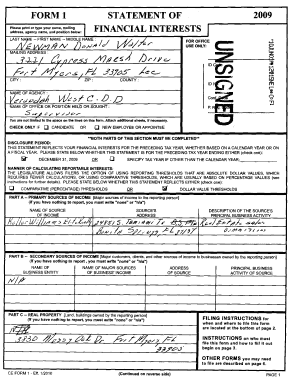 FORM 1
STATEMENT OF
2009
Please print or type your name, mailing address, agency name, and position below:
FINANCIAL INTERESTS
LAST NAME -- FIRST NAME -- MIDDLE NAME :
FOR OFFICE USE ONLY:
NEWMAN Donald Walter
MAILING ADDRESS :
3221 Cypress Marsh Drive
Fort Myers, FL 33905 Lee
CITY : ZIP : COUNTY :
UNSIGNED
NAME OF AGENCY :
Verandah West C.D.D
NAME OF OFFICE OR POSITION HELD OR SOUGHT :
Supervisor
You are not limited to the space on the lines on this form. Attach additional sheets, if necessary.
CHECK ONLY IF CANDIDATE OR NEW EMPLOYEE OR APPOINTEE
**BOTH PARTS OF THIS SECTION MUST BE COMPLETED**
DISCLOSURE PERIOD:
THIS STATEMENT REFLECTS YOUR FINANCIAL INTERESTS FOR THE PRECEDING TAX YEAR, WHETHER BASED ON A CALENDAR YEAR OR ON
A FISCAL YEAR. PLEASE STATE BELOW WHETHER THIS STATEMENT IS FOR THE PRECEDING TAX YEAR ENDING EITHER (check one):
DECEMBER 31, 2009 OR SPECIFY TAX YEAR IF OTHER THAN THE CALENDAR YEAR:
MANNER OF CALCULATING REPORTABLE INTERESTS:
THE LEGISLATURE ALLOWS FILERS THE OPTION OF USING REPORTING THRESHOLDS THAT ARE ABSOLUTE DOLLAR VALUES, WHICH
REQUIRES FEWER CALCULATIONS, OR USING COMPARATIVE THRESHOLDS, WHICH ARE USUALLY BASED ON PERCENTAGE VALUES (see
instructions for further details). PLEASE STATE BELOW WHETHER THIS STATEMENT REFLECTS EITHER (check one):
COMPARATIVE (PERCENTAGE) THRESHOLDS OR DOLLAR VALUE THRESHOLDS
PART A -- PRIMARY SOURCES OF INCOME [Major sources of income to the reporting person]
(If you have nothing to report, you must write "none" or "n/a")
NAME OF SOURCE OF INCOME
SOURCE'S ADDRESS
DESCRIPTION OF THE SOURCE'S PRINCIPAL BUSINESS ACTIVITY
Keller Williams Elite Realty
Bonita Springs, FL
PART B -- SECONDARY SOURCES OF INCOME [Major customers, clients, and other sources of income to businesses owned by the reporting person]
(If you have nothing to report, you must write "none" or "n/a")
NAME OF BUSINESS ENTITY
NAME OF MAJOR SOURCES OF BUSINESS' INCOME
ADDRESS OF SOURCE
PRINCIPAL BUSINESS ACTIVITY OF SOURCE
N/A
PART C -- REAL PROPERTY [Land, buildings owned by the reporting person]
(If you have nothing to report, you must write "none" or "n/a")
3830 Mossy Oak Dr Fort Myers FL
33905
FILING INSTRUCTIONS for when and where to file this form are located at the bottom of page 2.
INSTRUCTIONS on who must file this form and how to fill it out begin on page 3.
OTHER FORMS you may need to file are described on page 6.
CE FORM 1 - Eff. 1/2010
(Continued on reverse side)
PAGE 1